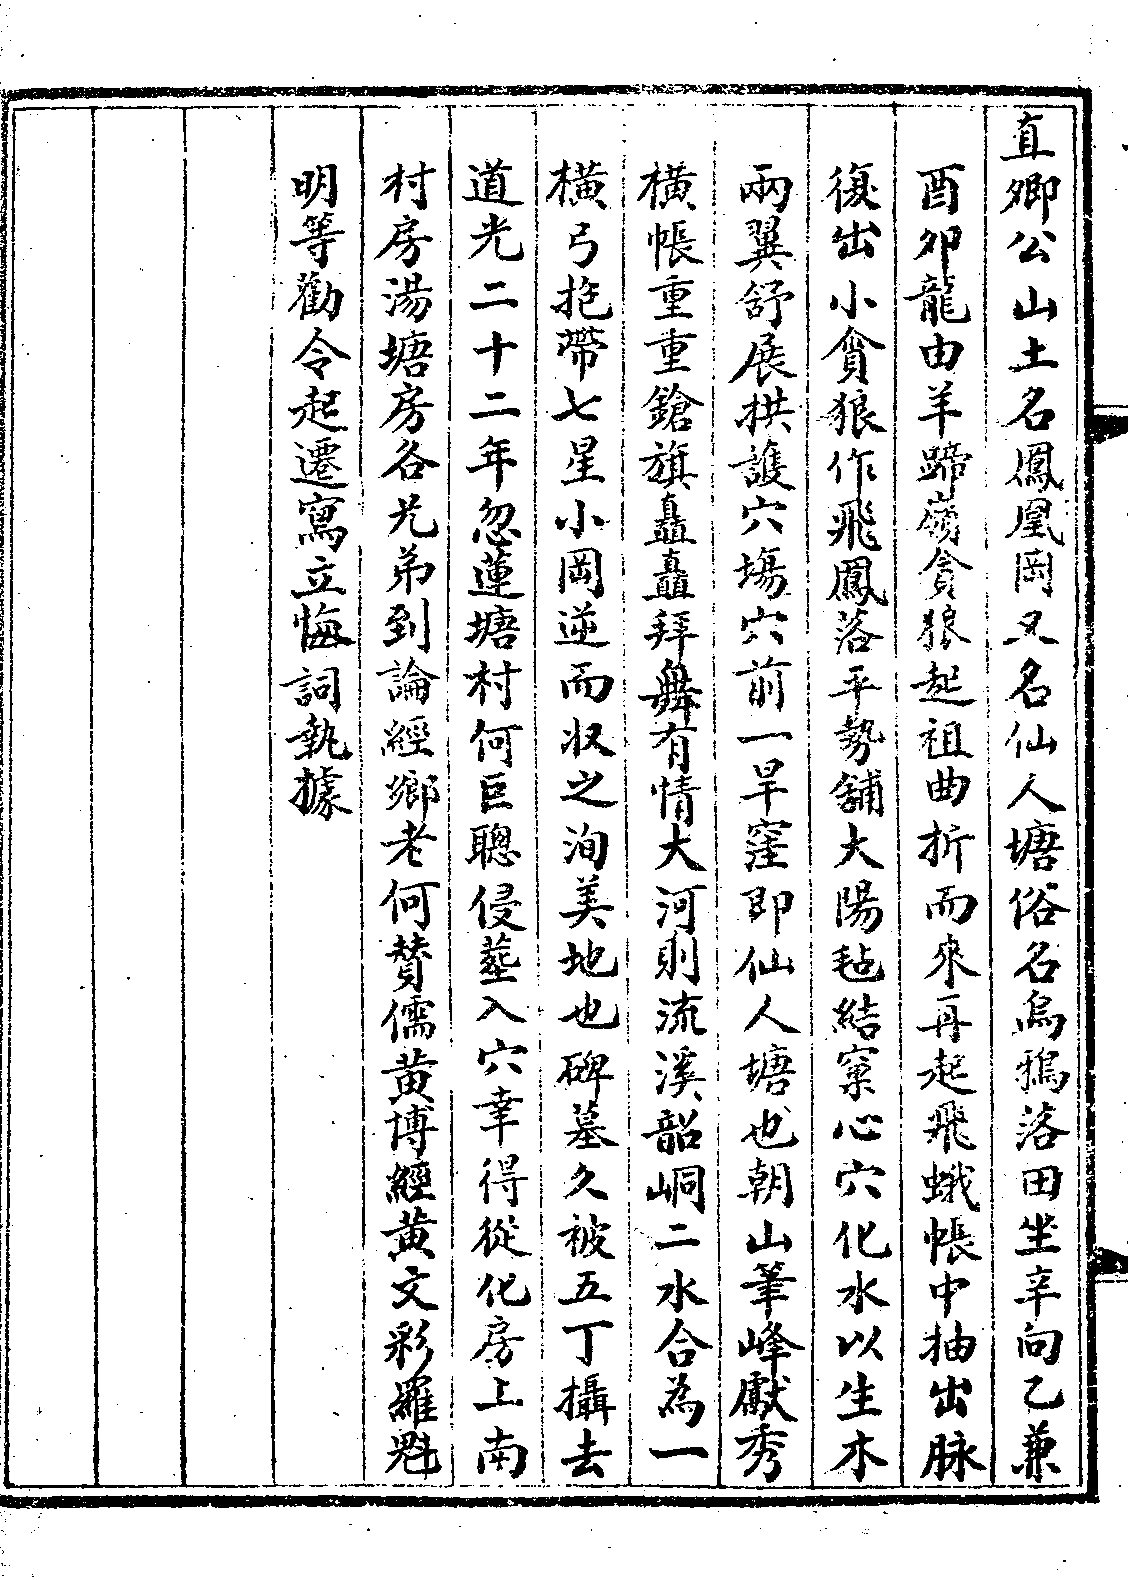 直卿公山土名鳳凰岡又名仙人塘俗名烏鴉落田坐辛向乙兼
酉卯龍由羊蹄嶺貪狼起祖曲折而來再起飛蛾帳中抽出脉
復出小貪狼作飛鳳落平勢舖大陽毡結窠心穴化水以生木
兩翼舒展拱護穴塲穴前一旱窪即仙人塘也朝山筆峰獻秀
橫帳重重鎗旗矗矗拜舞有情大河則流溪韶峒二水合為一
橫弓抱帶七星小岡逆而收之洵美地也碑墓久被五丁攝去
道光二十二年忽蓮塘村何巨聰侵塟入穴幸得從化房上南
村房湯塘房各兄弟到論經鄉老何贊儒黃博經黃文彩羅魁
明等勸令起遷寫立悔詞執據